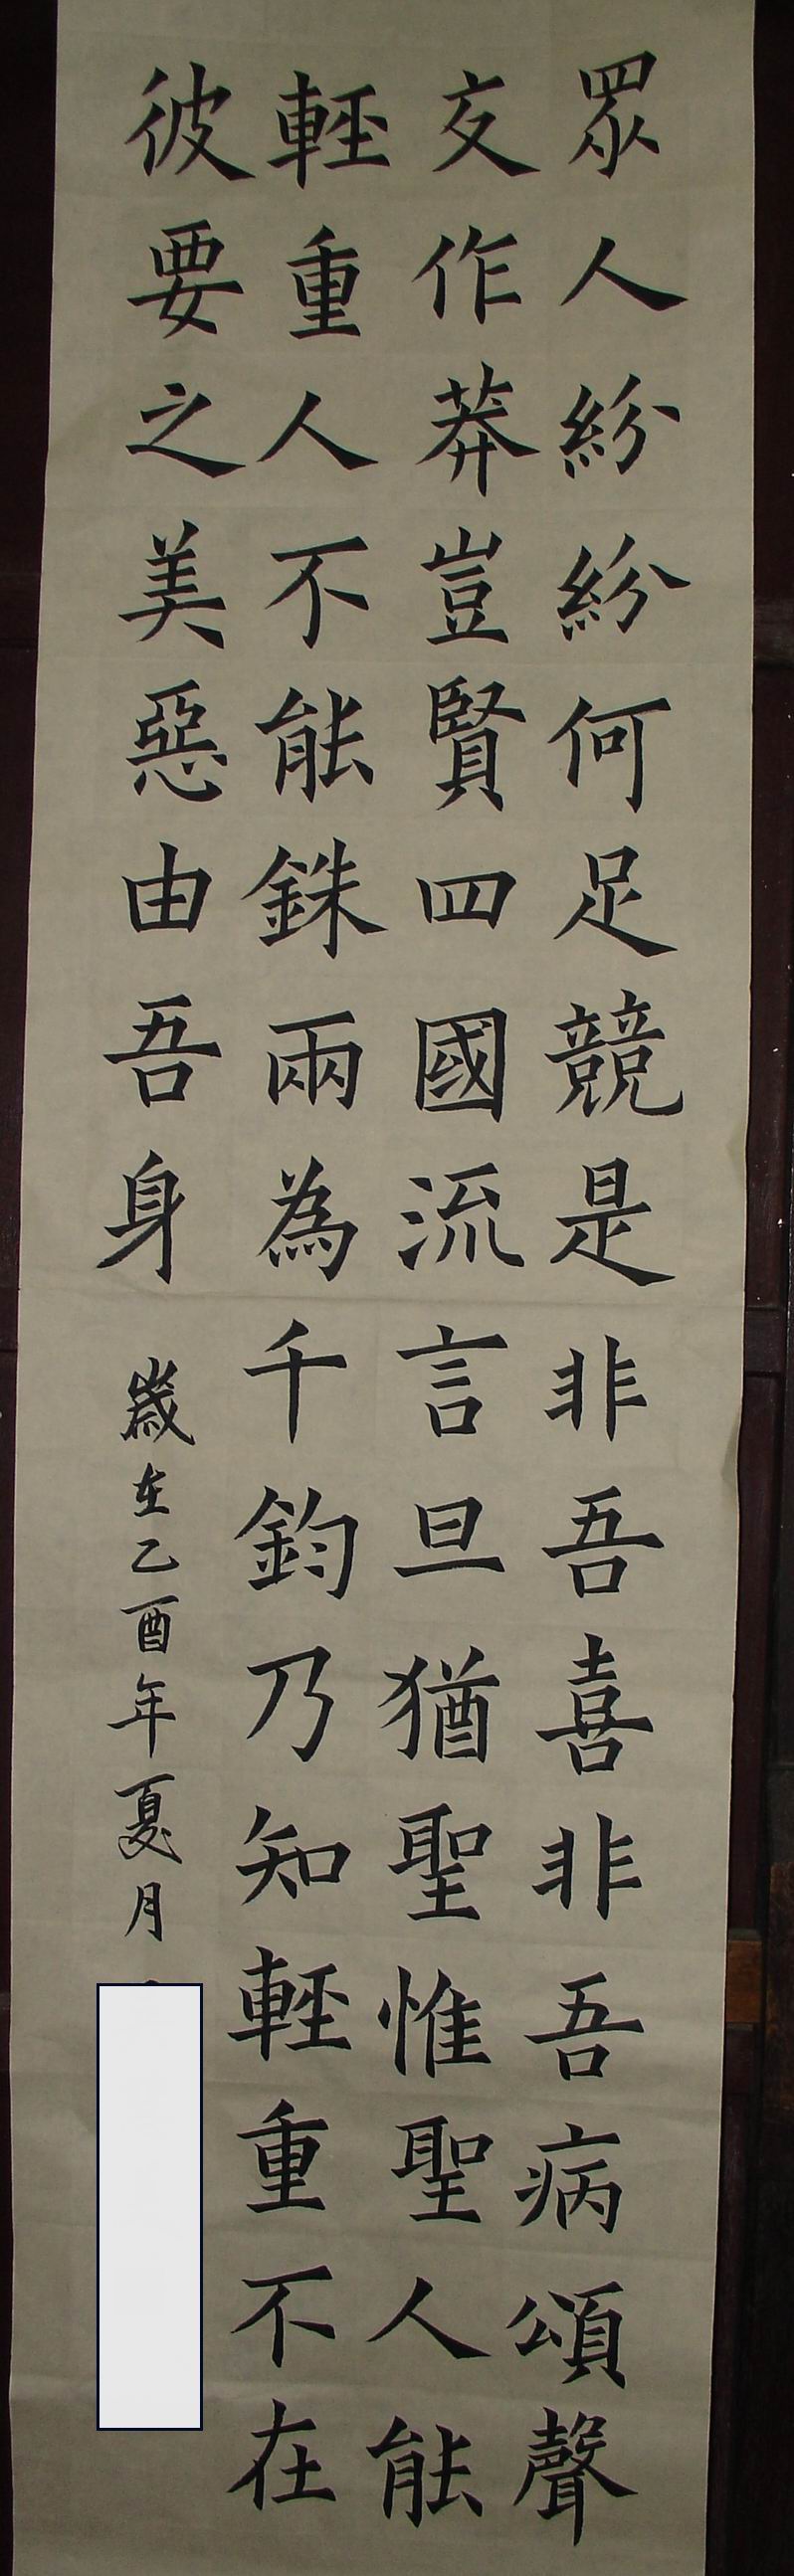 眾人紛紛何足競是非吾喜非吾病頌聲
交作莽豈賢四國流言旦猶聖惟聖人能
輕重人不能銖兩為千鈞乃知輕重不在
彼要之美惡由吾身
歲在乙酉年夏月